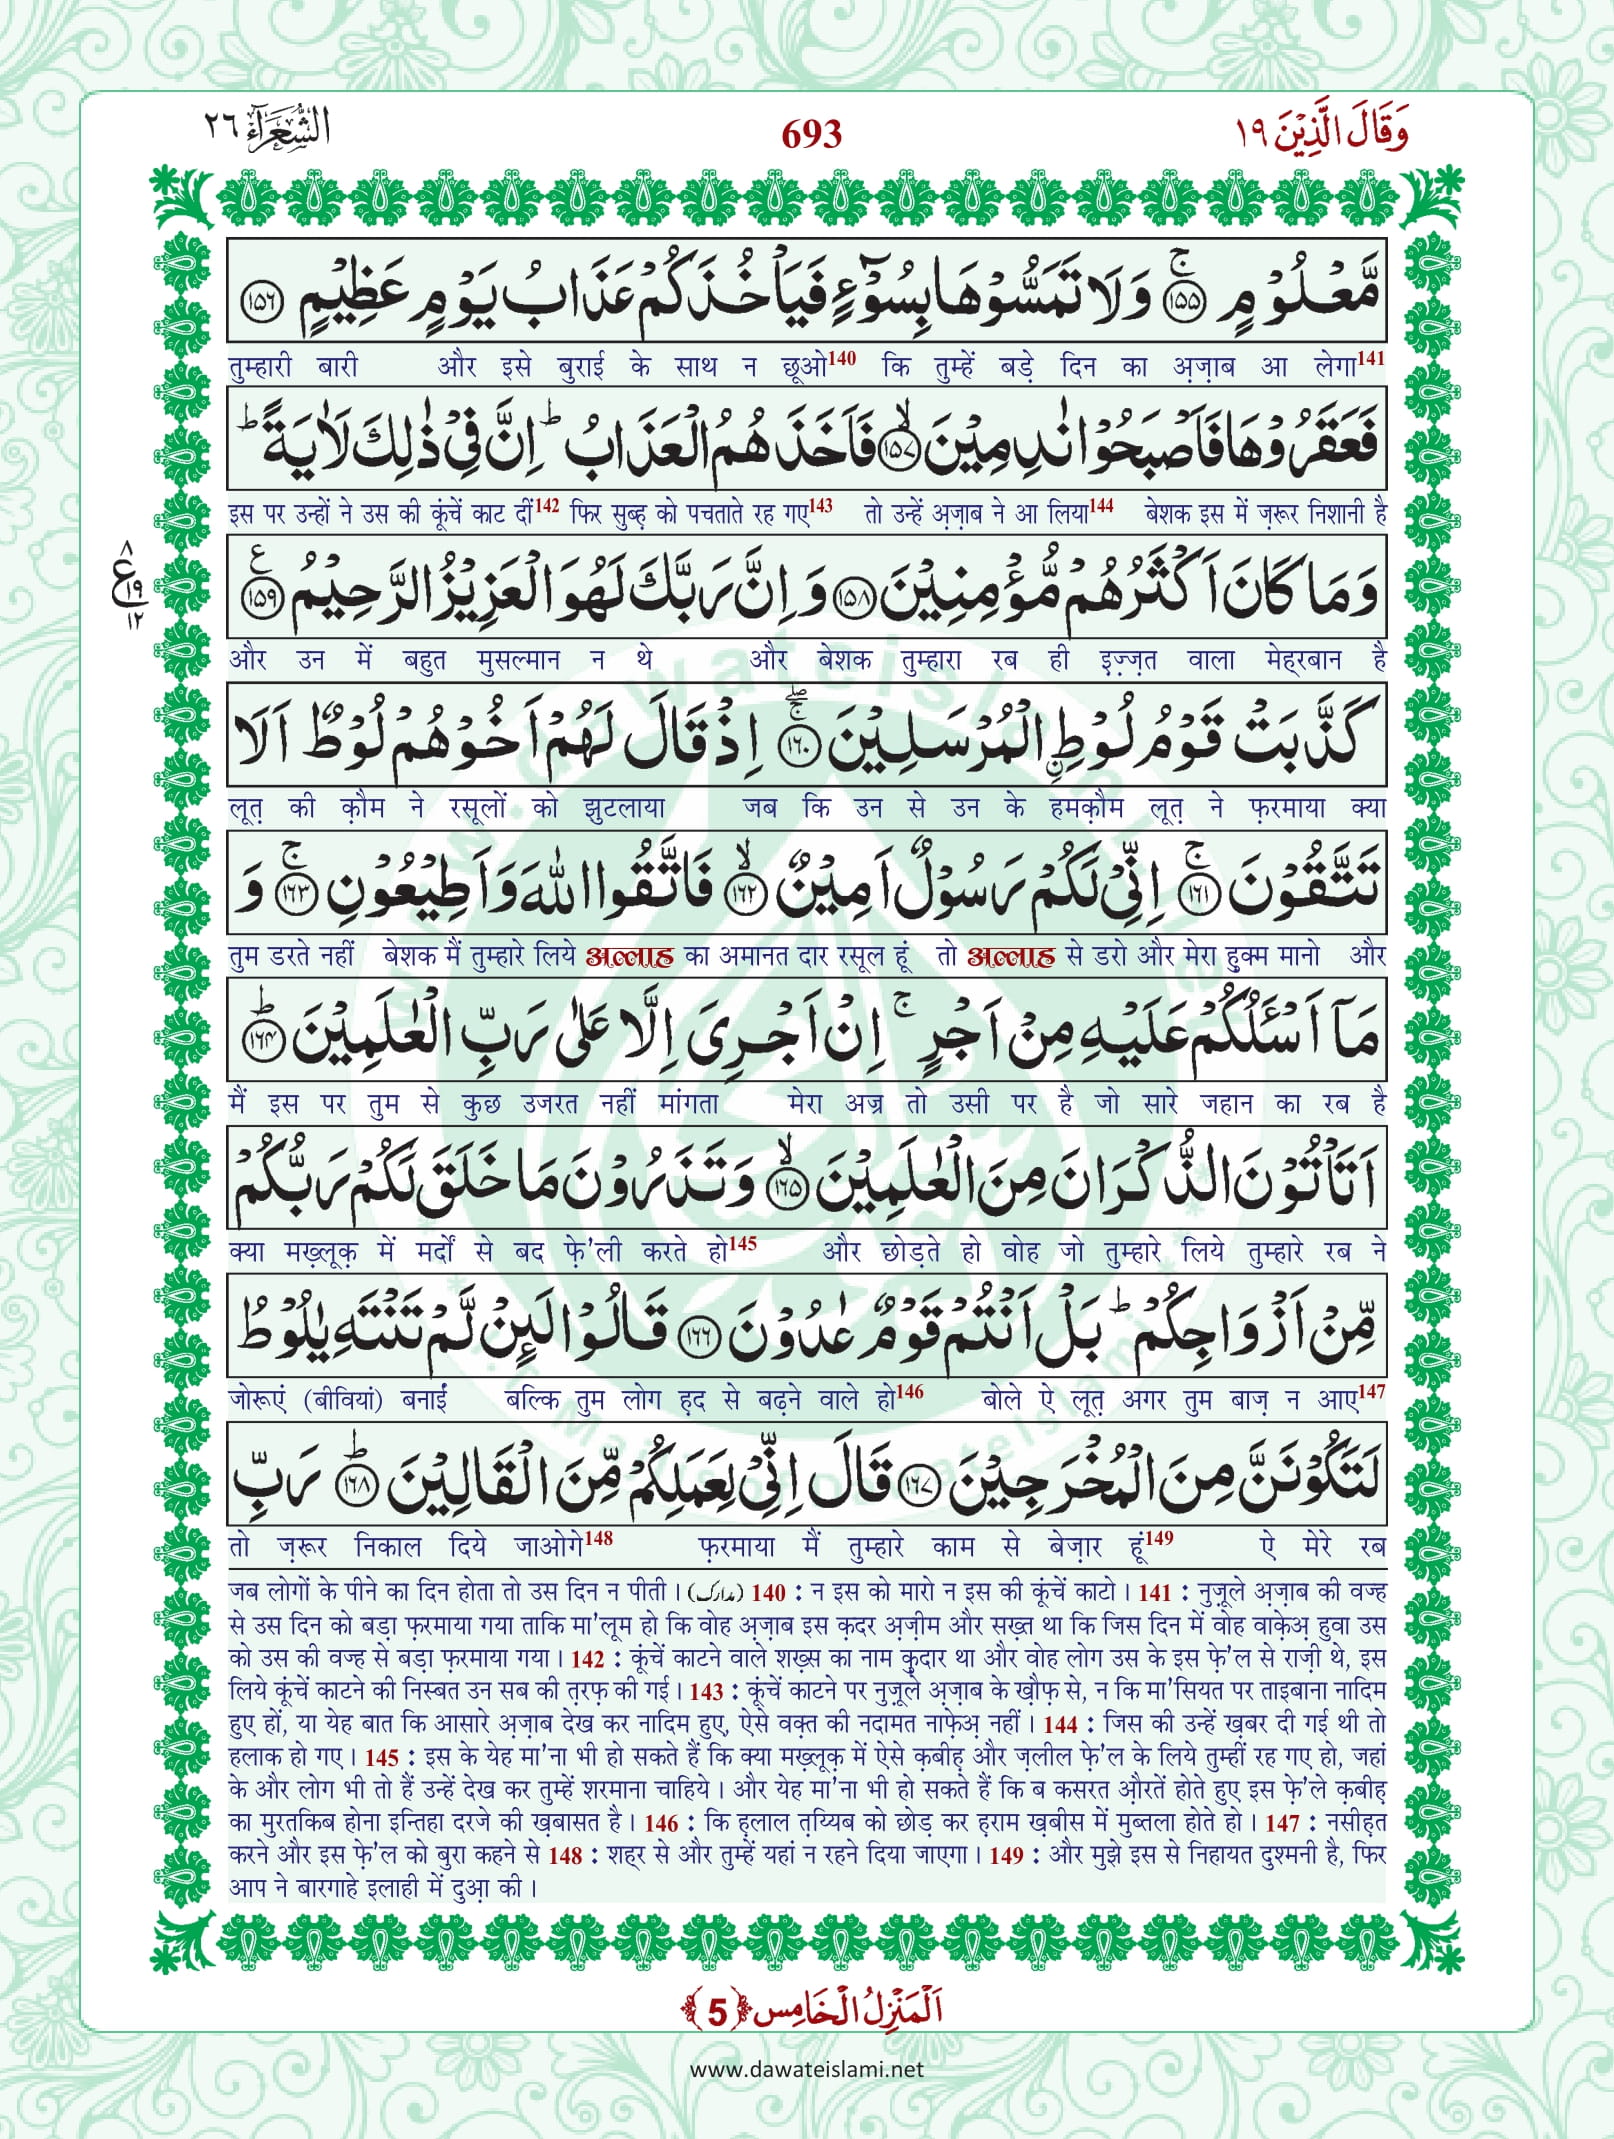 وَقَالَ الَّذِیۡنَ ۱۹
693
الشُّعَرَآء ۲۶
مَّعْلُوْمٍ ۚ﴿۱۵۵﴾ وَلَا تَمَسُّوْهَا بِسُوْٓءٍ فَیَاْخُذَكُمْ عَذَابُ یَوْمٍ عَظِیْمٍ ﴿۱۵۶﴾
तुम्हारी बारी और इसे बुराई के साथ न छूओ140 कि तुम्हें बड़े दिन का अ़ज़ाब आ लेगा141
فَعَقَرُوْهَا فَاَصْبَحُوْا نٰدِمِیْنَ ۙ﴿۱۵۷﴾ فَاَخَذَهُمُ الْعَذَابُ ؕ اِنَّ فِیْ ذٰلِكَ لَاٰیَةً ؕ
इस पर उन्हों ने उस की कूंचें काट दीं142 फिर सुब्ह़ को पचताते रह गए143 तो उन्हें अ़ज़ाब ने आ लिया144 बेशक इस में ज़रूर निशानी है
وَمَا كَانَ اَكْثَرُهُمْ مُّؤْمِنِیْنَ ﴿۱۵۸﴾ وَ اِنَّ رَبَّكَ لَهُوَ الْعَزِیْزُ الرَّحِیْمُ ﴿۱۵۹﴾ ع
۸ ع ۱۹ ۱۲
और उन में बहुत मुसल्मान न थे और बेशक तुम्हारा रब ही इ़ज़्ज़त वाला मेह्रबान है
كَذَّبَتْ قَوْمُ لُوْطِ ِ۟الْمُرْسَلِیْنَ ﴿۱۶۰﴾ۚۖ اِذْ قَالَ لَهُمْ اَخُوْهُمْ لُوْطٌ اَلَا
लूत़ की क़ौम ने रसूलों को झुटलाया जब कि उन से उन के हमक़ौम लूत़ ने फ़रमाया क्या
تَتَّقُوْنَ ۚ﴿۱۶۱﴾ اِنِّیْ لَكُمْ رَسُوْلٌ اَمِیْنٌ ۙ﴿۱۶۲﴾ فَاتَّقُوا اللّٰهَ وَاَطِیْعُوْنِ ۚ﴿۱۶۳﴾ وَ
तुम डरते नहीं बेशक मैं तुम्हारे लिये अल्लाह का अमानत दार रसूल हूं तो अल्लाह से डरो और मेरा हु़क्म मानो और
مَاۤ اَسْـَٔلُكُمْ عَلَیْهِ مِنْ اَجْرٍ ۚ اِنْ اَجْرِیَ اِلَّا عَلٰی رَبِّ الْعٰلَمِیْنَ ؕ﴿۱۶۴﴾
मैं इस पर तुम से कुछ उजरत नहीं मांगता मेरा अज्र तो उसी पर है जो सारे जहान का रब है
اَتَاْتُوْنَ الذُّكْرَانَ مِنَ الْعٰلَمِیْنَ ۙ﴿۱۶۵﴾ وَتَذَرُوْنَ مَا خَلَقَ لَكُمْ رَبُّكُمْ
क्या मख़्लूक़ में मर्दों से बद फ़े'ली करते हो145 और छोड़ते हो वोह जो तुम्हारे लिये तुम्हारे रब ने
مِّنْ اَزْوَاجِكُمْ ؕ بَلْ اَنْتُمْ قَوْمٌ عٰدُوْنَ ﴿۱۶۶﴾ قَالُوْا لَىِٕنْ لَّمْ تَنْتَهِ یٰلُوْطُ
जोरूएं (बीवियां) बनाईं बल्कि तुम लोग ह़द से बढ़ने वाले हो146 बोले ऐ लूत़ अगर तुम बाज़ न आए147
لَتَكُوْنَنَّ مِنَ الْمُخْرَجِیْنَ ﴿۱۶۷﴾ قَالَ اِنِّیْ لِعَمَلِكُمْ مِّنَ الْقَالِیْنَ ؕ﴿۱۶۸﴾ رَبِّ
तो ज़रूर निकाल दिये जाओगे148 फ़रमाया मैं तुम्हारे काम से बेज़ार हूं149 ऐ मेरे रब
जब लोगों के पीने का दिन होता तो उस दिन न पीती। (مدارک) 140 : न इस को मारो न इस की कूंचें काटो। 141 : नुज़ूले अ़ज़ाब की वज्ह
से उस दिन को बड़ा फ़रमाया गया ताकि मा'लूम हो कि वोह अ़ज़ाब इस क़दर अ़ज़ीम और सख़्त था कि जिस दिन में वोह वाके़अ़ हुवा उस
को उस की वज्ह से बड़ा फ़रमाया गया। 142 : कूंचें काटने वाले शख़्स का नाम क़ुदार था और वोह लोग उस के इस फ़े'ल से राज़ी थे, इस
लिये कूंचें काटने की निस्बत उन सब की त़रफ़ की गई। 143 : कूंचें काटने पर नुज़ूले अ़ज़ाब के ख़ौफ़ से, न कि मा'सियत पर ताइबाना नादिम
हुए हों, या येह बात कि आसारे अ़ज़ाब देख कर नादिम हुए, ऐसे वक़्त की नदामत नाफे़अ़ नहीं। 144 : जिस की उन्हें ख़बर दी गई थी तो
हलाक हो गए। 145 : इस के येह मा'ना भी हो सकते हैं कि क्या मख़्लूक़ में ऐसे क़बीह़ और ज़लील फ़े'ल के लिये तुम्हीं रह गए हो, जहां
के और लोग भी तो हैं उन्हें देख कर तुम्हें शरमाना चाहिये। और येह मा'ना भी हो सकते हैं कि ब कसरत औ़रतें होते हुए इस फ़े'ले क़बीह़
का मुरतकिब होना इन्तिहा दरजे की ख़बासत है। 146 : कि ह़लाल त़य्यिब को छोड़ कर ह़राम ख़बीस में मुब्तला होते हो। 147 : नसीह़त
करने और इस फ़े'ल को बुरा कहने से 148 : शहर से और तुम्हें यहां न रहने दिया जाएगा। 149 : और मुझे इस से निहायत दुश्मनी है, फिर
आप ने बारगाहे इलाही में दुआ़ की।
اَلْمَنْزِلُ الْخَامِس ﴿5﴾
www.dawateislami.net